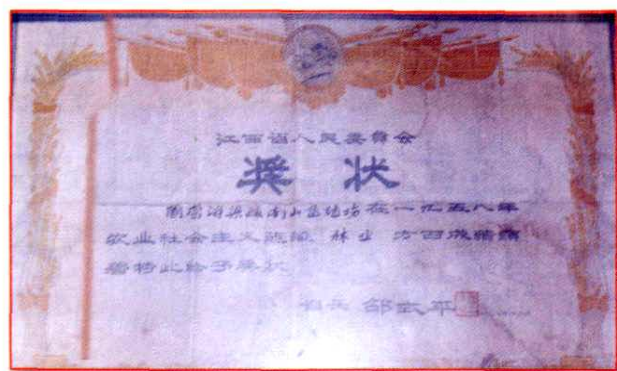 江西省人民委员会
奖状
南山垦殖场在一九五八年
农业社会主义建设 林业 方面成绩显
著特此给予奖状
省长 邵式平